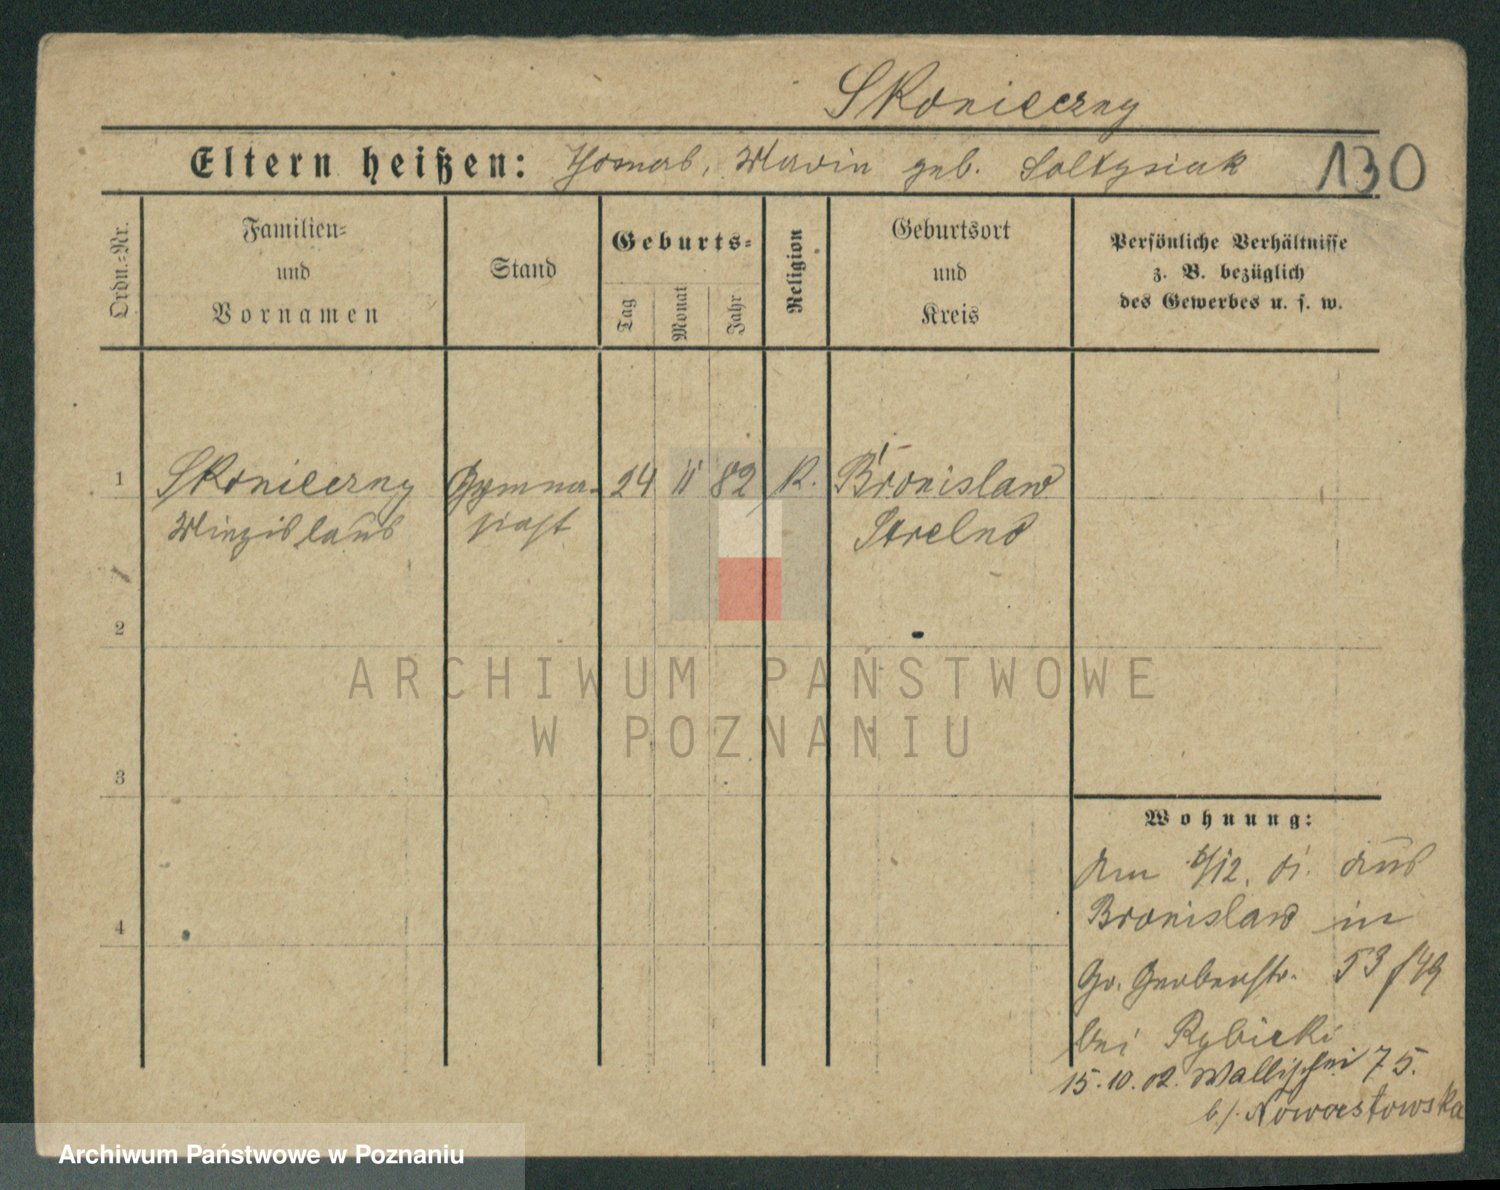 Skonieczny
Eltern heißen: Thomas, Maria geb. Soltysiak 130
Ordn.-Nr.
Familien-
und
Vornamen
Stand
Geburts-
Tag
Monat
Jahr
Religion
Geburtsort
und
Kreis
Persönliche Verhältnisse
z. B. bezüglich
des Gewerbes u. s. w.
1 Skonieczny Gymna- 24 11 82 K. Bronislaw
Miezislaus siast Strelno
2
3
4
Wohnung:
Am /12. 01. aus
Bronislaw in
Gr. Gerberstr. 53/49
bei Rybicki
15.10.02. Wallischei 75.
b/. Nowostowska
ARCHIWUM PAŃSTWOWE
W POZNANIU
Archiwum Państwowe w Poznaniu